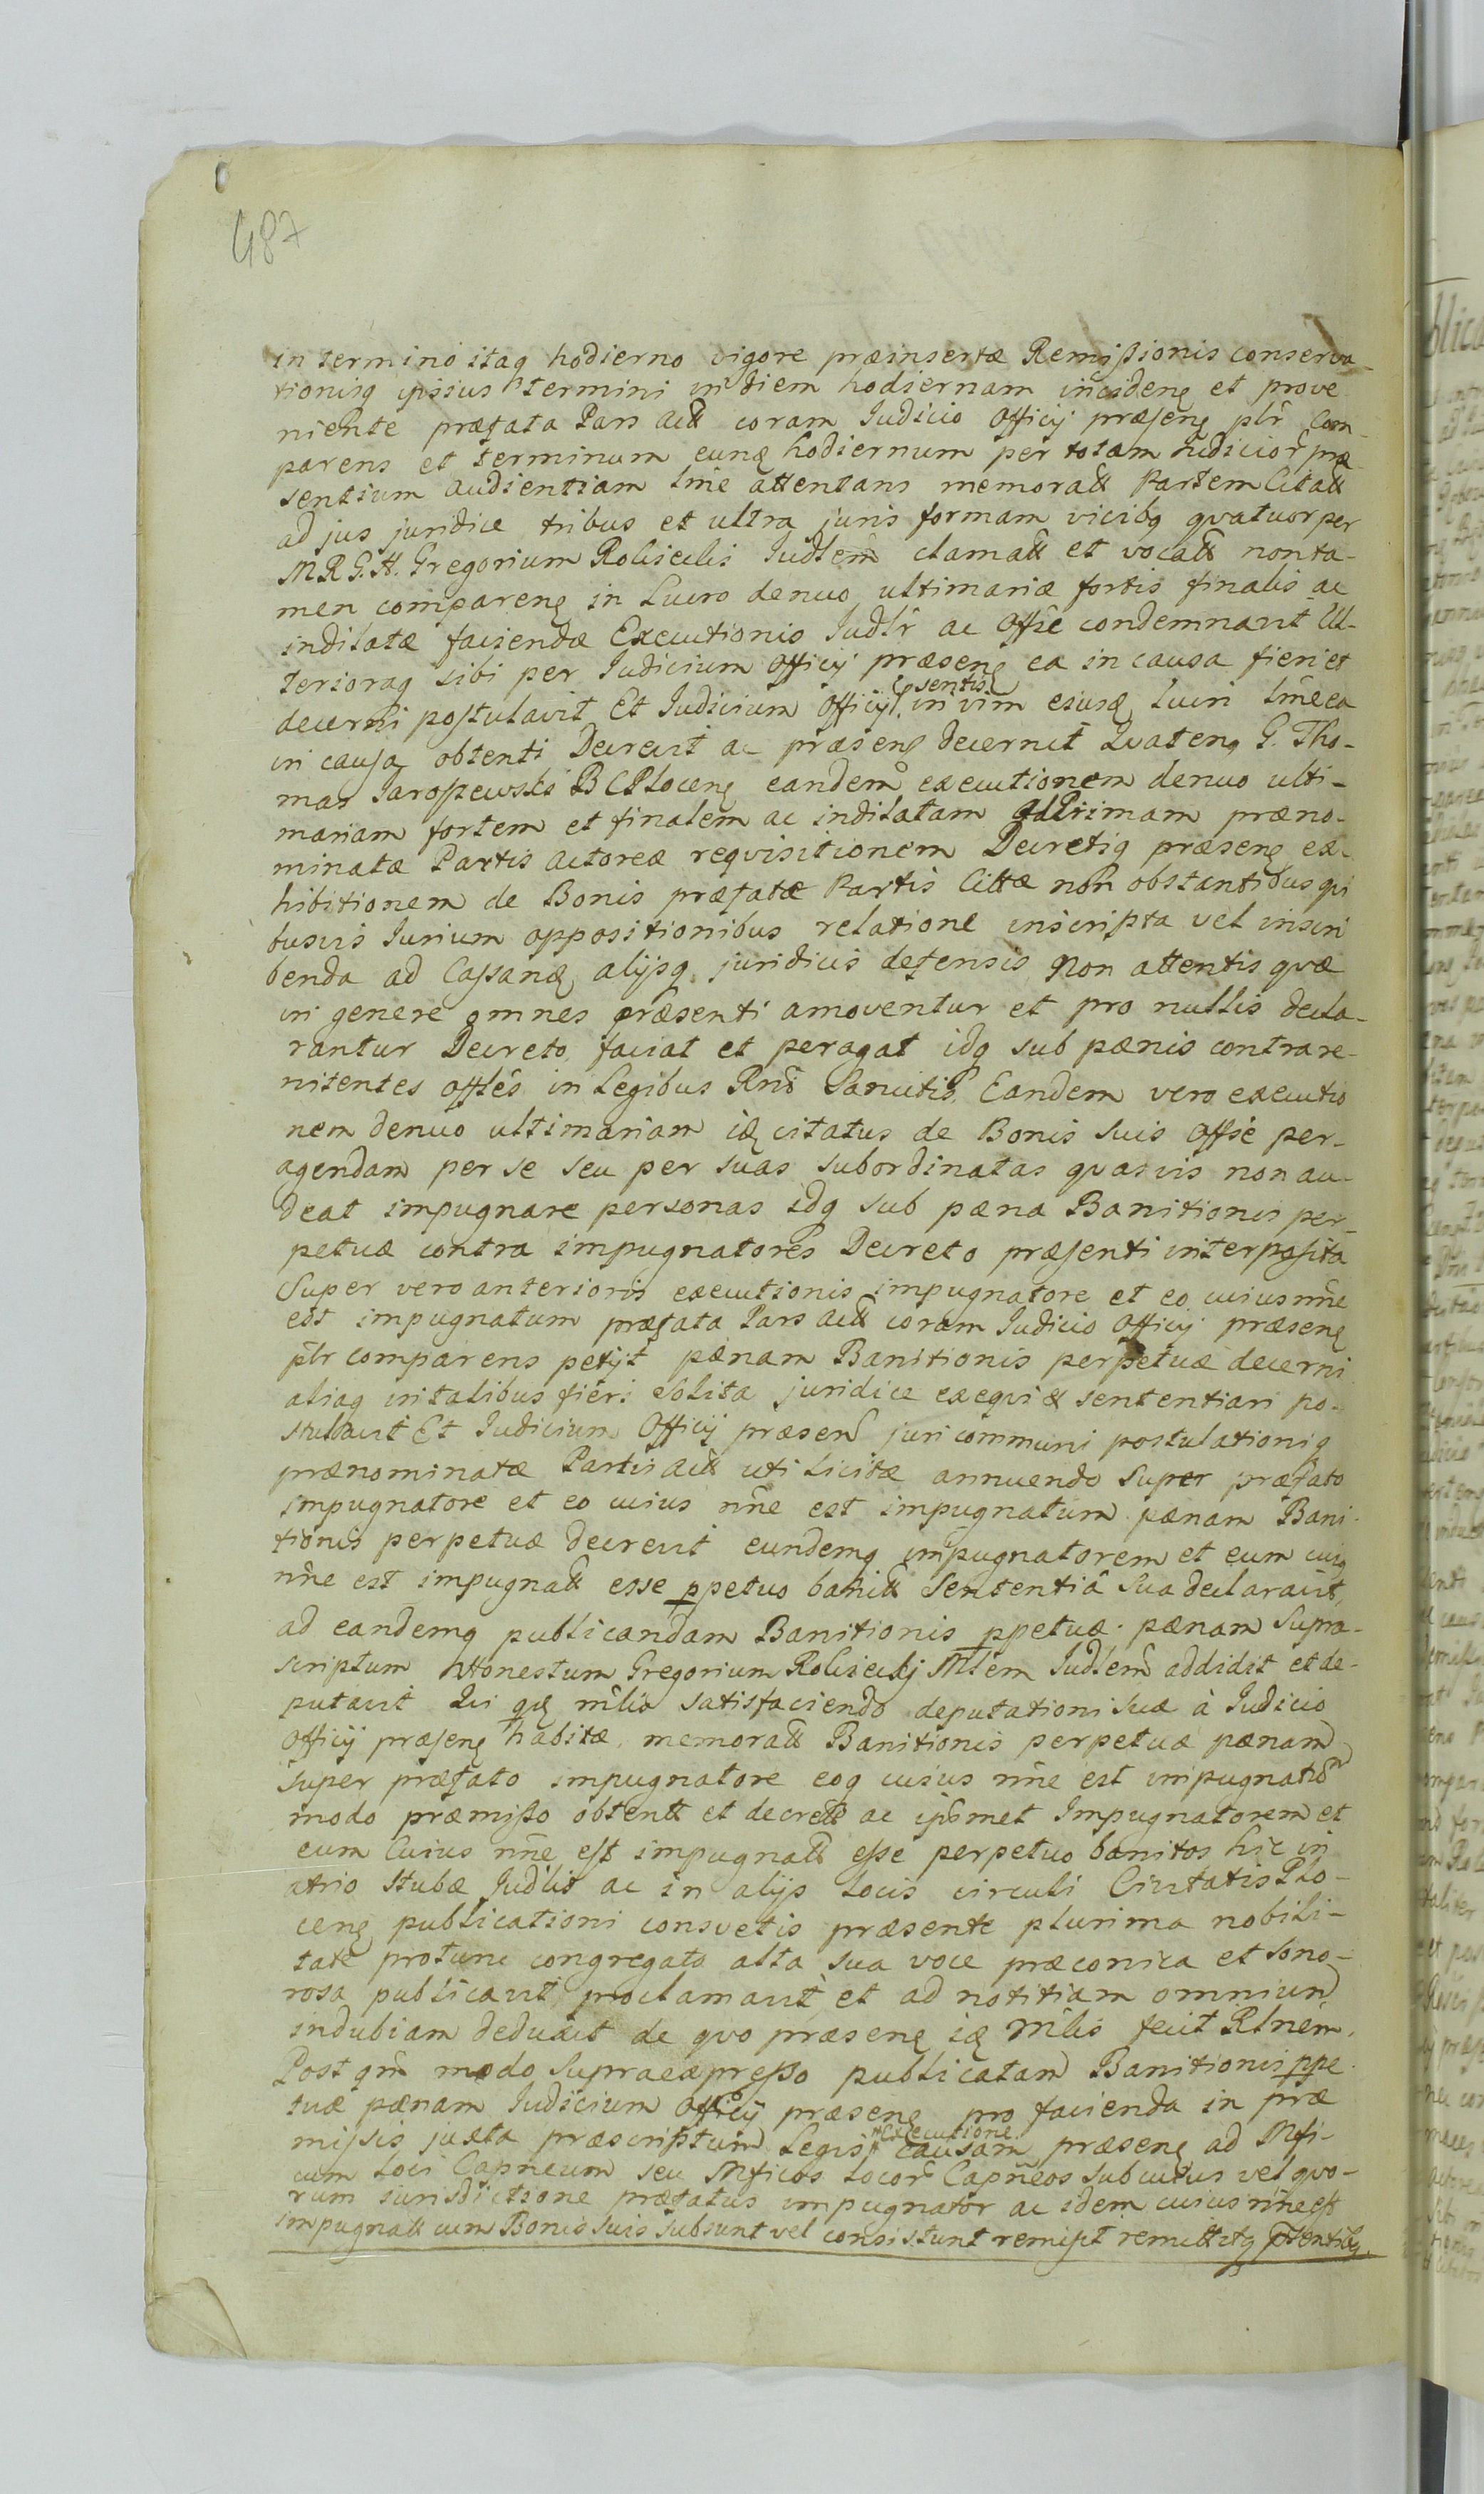 487
in termino itaq hodierno vigore præinsertæ Remissionis conserva-
tionisq ipsius termini in diem hodiernam incidenę et prove
niente præfata Pars actt coram Iudicio Officij præsenę plr Com-
parens et terminum eunę hodiernum per totam Iudicior præ-
sentium audientiam lme attentans memoratt Partem Citatt
ad jus juridice tribus et ultra juris formam vicibq qvatuor per
MRG.H. Gregorium Roliciecki Iudlem clamatt et vocatt non ta-
men comparenę in Lucro denuo ultimariæ fortis finalis ac
indilatæ faciendæ Executionis Iudlr ac Offie condemnavit Ul-
terioraq sibi per Iudicium Officij præsenę ea in causa fieri et
decerni postulavit Et Iudicium Officij psentis in vim eiusę lucri lme ea
in causa obtenti Decrevit ac præsenę decernit Qvatenq G. Tho-
mas Jaroszewski BCPlocenę eandem executionem denuo ulti-
mariam fortem et finalem ac indilatam ad primam præno-
minatæ Partis actoreæ reqvisitionem Decretiq præsenę ex-
hibitionem de Bonis præfatæ Partis Cittæ non obstantibus qvi
busvis Iurium oppositionibus relatione inscripta vel inscri
benda ad Cassanę alijsq juridicis defensis non attentis qvæ
in genere omnes præsenti amoventur et pro nullis decla-
rantur Decreto faciat et peragat idq sub pænis contra re-
nitentes offles in Legibus Rni Sancitis Eandem vero executio
nem denuo ultimariam ią citatus de Bonis suis offie per-
agendam per se seu per suas subordinatas qvasvis non au-
deat impugnare personas idq sub pæna Banitionis per-
petuæ contra impugnatores Decreto præsenti interposita
Super vero anterioris executionis impugnatore et eo cuius nne
est impugnatum præfata Pars actt coram Iudicio Officij præsenę
plr comparens petijt pænam Banitionis perpetuæ decerni
aliaq in talibus fieri solita juridice exeqvi & sententiari po-
stulavit Et Iudicium Officij præsenę juri communi postulationiq
prænominatæ Partis actt uti licitæ annuendo super præfato
impugnatore et eo cuius nne est impugnatum pænam Bani-
tionis perpetuæ decrevit eundemq impugnatorem et eum cuiq
nne est impugnatt esse ppetuo banitt Sententiâ sua declaravit,
ad eandemq publicandam Banitionis ppetuæ pænam supra-
scriptum Honestum Gregorium Roliciecki Mlem Iudlem addidit et de-
putavit Qui qvę mlis satisfaciendo deputationi suæ à Iudicio
Officij præsenę habitæ, memoratt Banitionis perpetuæ pænam
super præfato impugnatore eoq cuius nne est impugnatū
modo præmisso obtentt et decrett ac ipsmet Impugnatorem et
eum Cuius nne est impugnatt esse perpetuo banitos hic in
atrio Stubæ Iudlis ac in alijs locis circuli Civitatis Plo-
cenę publicationi consvetis præsente plurima nobili-
tate protunc congregata alta sua voce præconica et sono-
rosa publicavit proclamavit et ad notitiam omnium
indubiam deduxit de qvo præsenę ię Mlis fecit Rlnem.
Post qm modo supraexpresso publicatam Banitionis ppe-
tuæ pænam Iudicium Officij præsenę pro facienda in præ
missis juxta præscriptum Legis Executione causam præsenę ad Mfi-
cum Loci Capneum seu Mficos locor Capneos sub cuius vel qvo-
rum iurisdictione præfatus impugnator ac idem cuius nne est
impugnatt cum Bonis suis subsunt vel consistunt remisit remittitq psentibq.